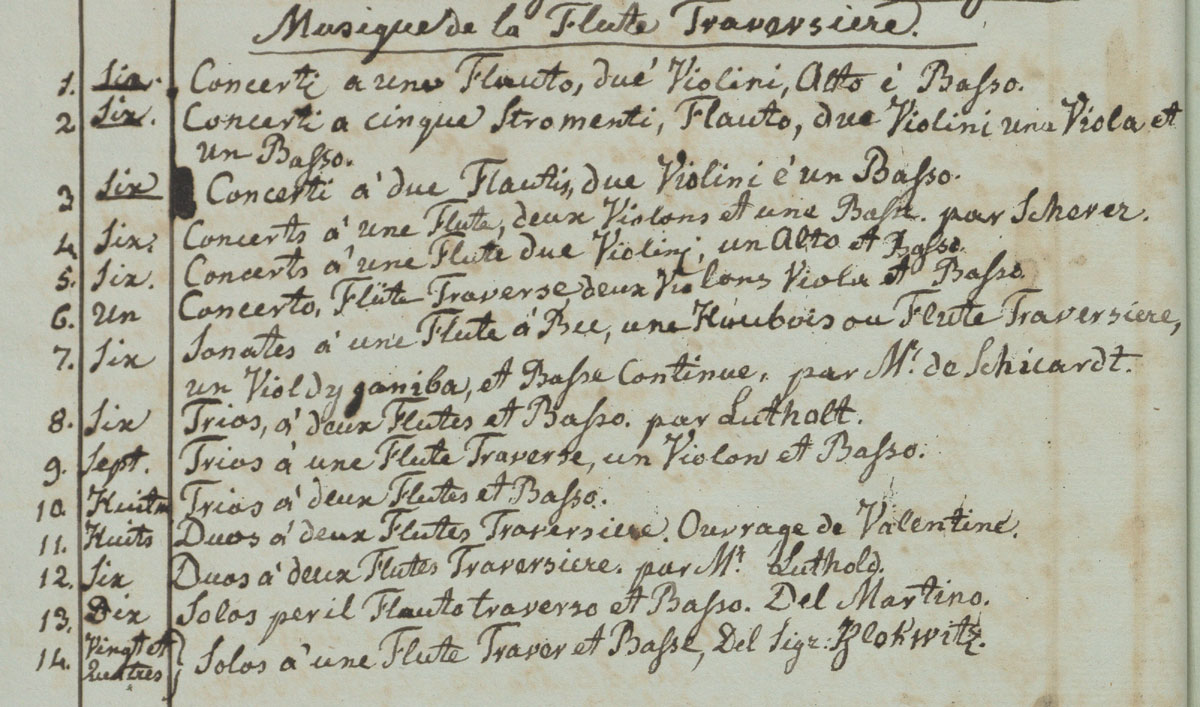 Musique de la Flute Traversiere.
1. Six. Concerti a une Flauto, dué Violini, Alto é Basso.
2 Six. Concerti a cinque Stromenti, Flauto, due Violini una Viola et
un Basso.
3 Six Concerti á due Flautis, due Violini é un Basso.
4. Six. Concerts á une Flute, deux Violons et une Basse. par Scherer.
5. Six. Concerts á une Flute due Violini, un Alto et Basso.
6. Un Concerto, Flüte Traverse, deux Violons Viola et Basso
7. Six Sonates á une Flute á Bec, une Houbois ou Flute Traversiere,
un Violdy gamba, et Basse Continue. par Mr. de Schicardt.
8. Six Trios, á deux Flutes et Basso. par Lutholt.
9. Sept. Trios á une Flute Traverse, un Violon et Basso.
10. Huits Trios á deux Flutes et Basso.
11. Huits Duos á deux Flutes Traversiere. Ouvrage de Valentine.
12. Six Duos á deux Flutes Traversiere. par Mr. Luthold.
13. Dix Solos per il Flauto traverso et Basso. Del Martino.
14. Vingt et
Quatres Solos á une Flute Traver et Basse, Del Sigr: Klokwitz.